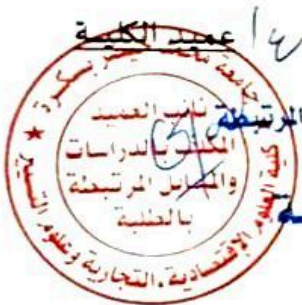 عميد الكلية
جامعة محمد خيضر بسكرة
نائب العميد
المكلف بالدراسات
والمسائل المرتبطة
بالطلبة
كلية العلوم الاقتصادية، التجارية وعلوم التسيير
المرتبطة